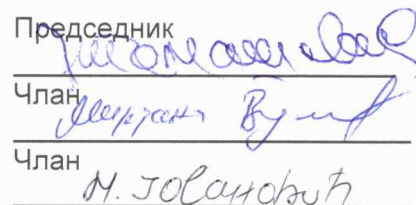 Председник
Члан
Мирјана
Члан
М. Јовановић